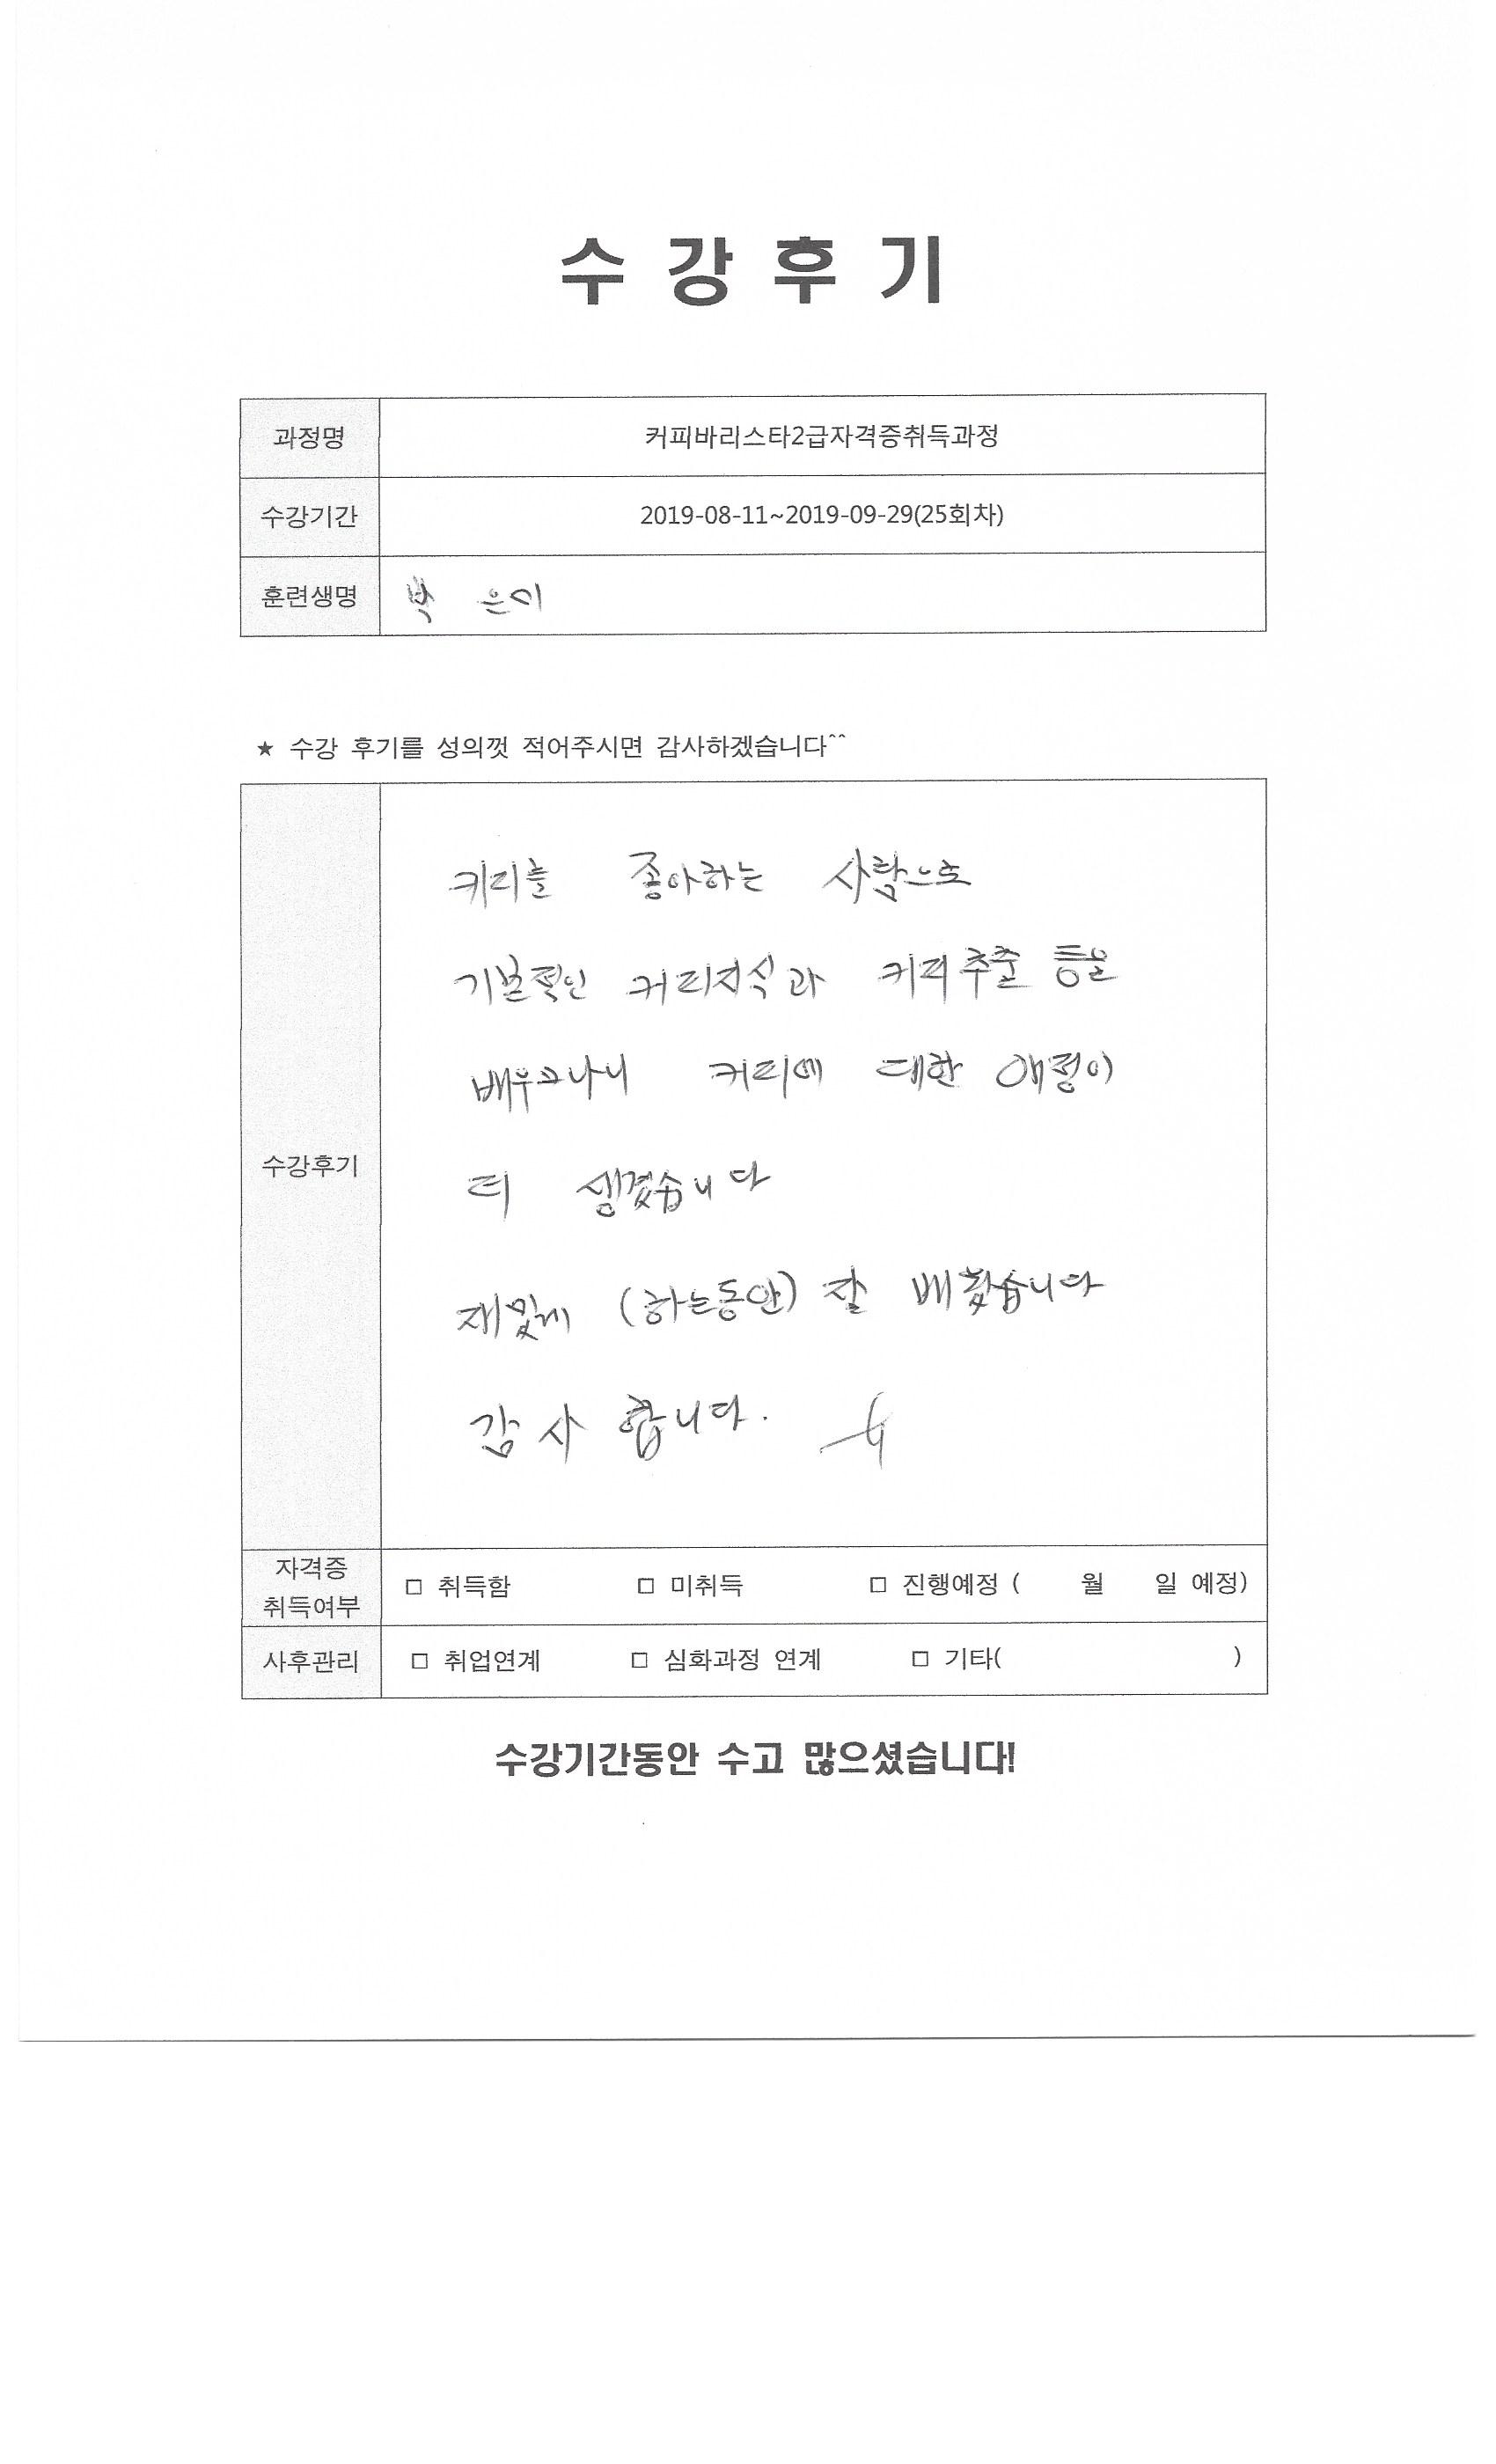 수 강 후 기
과정명 커피바리스타2급자격증취득과정
수강기간 2019-08-11~2019-09-29(25회차)
훈련생명 박 은미
★ 수강 후기를 성의껏 적어주시면 감사하겠습니다^^
수강후기
커피를 좋아하는 사람으로
기본적인 커피지식과 커피추출 등을
배우고나니 커피에 대한 애정이
더 생겼습니다
재밌게 (하는동안) 잘 배웠습니다
감사 합니다.
자격증
취득여부 □ 취득함 □ 미취득 □ 진행예정 ( 월 일 예정)
사후관리 □ 취업연계 □ 심화과정 연계 □ 기타( )
수강기간동안 수고 많으셨습니다!